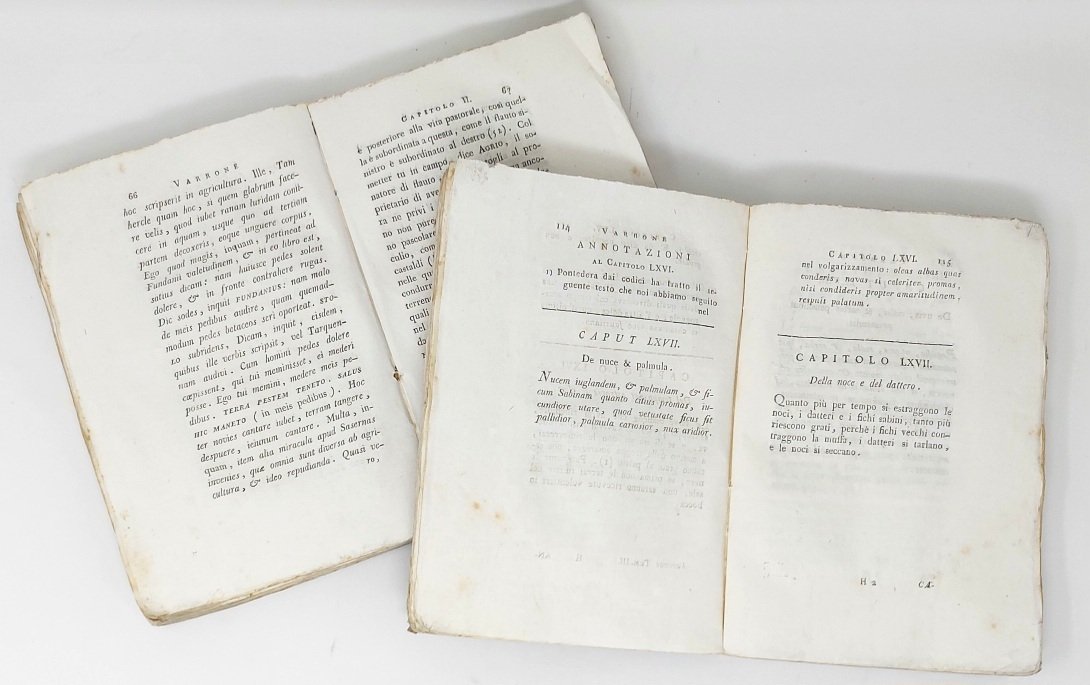 66
VARRONE
hoc scripserit in agricultura. Ille, Tam
hercle quam hoc, si quem glabrum face-
re velis, quod iubet ranam luridam coniï-
cere in aquam, usque quo ad tertiam
partem decoxeris, eoque unguere corpus.
Ego quod magis, inquam, pertineat ad
Fundanii valetudinem, & in eo libro est,
satius dicam: nam huiusce pedes solent
dolere, & in fronte contrahere rugas.
Dic sodes, inquit FUNDANIUS: nam malo
de meis pedibus audire, quam quemad-
modum pedes betaceos seri oporteat. STO-
LO subridens, Dicam, inquit, eisdem,
quibus ille verbis scripsit, vel Tarquen-
nam audivi. Cum homini pedes dolere
cœpissent, qui tui meminisset, ei mederi
posse. Ego tui memini, medere meis pe-
dibus. TERRA PESTEM TENETO. SALUS
HIC MANETO (in meis pedibus). Hoc
ter novies cantare iubet, terram tangere,
despuere, ieiunum cantare. Multa, in-
quam, item alia miracula apud Sasernas
invenies, quæ omnia sunt diversa ab agri-
cultura, & ideo repudianda. Quasi ve-
ro,
CAPITOLO II.
67
è posteriore alla vita pastorale, così quel-
la è subordinata a questa, come il flauto si-
nistro è subordinato al destro (51). Col
metter tu in campo, dice AGRIO, il so-
natore di flauto, ogli al pro-
prietario di ave anco-
ra ne privi i
no non pure
no pascolare
culio, com
castaldi (
nelle qu
condurr
terreno
quali
nel
da
114
VARRONE
ANNOTAZIONI
AL CAPITOLO LXVI.
1) Pontedera dai codici ha tratto il se-
guente testo che noi abbiamo seguito
nel
CAPUT LXVII.
De nuce & palmula.
Nucem iuglandem, & palmulam, & fi-
cum Sabinam quanto citius promas, iu-
cundiore utare, quod vetustate ficus fit
pallidior, palmula cariosior, nux aridior.
CAPITOLO LXVI.
115
nel volgarizzamento: oleas albas quas
conderis, novas si celeriter promas,
nisi condideris propter amaritudinem,
respuit palatum.
CAPITOLO LXVII.
Della noce e del dattero.
Quanto più per tempo si estraggono le
noci, i datteri e i fichi sabini, tanto più
riescono grati, perchè i fichi vecchi con-
traggono la muffa, i datteri si tarlano,
e le noci si seccano.
H 2
CA-